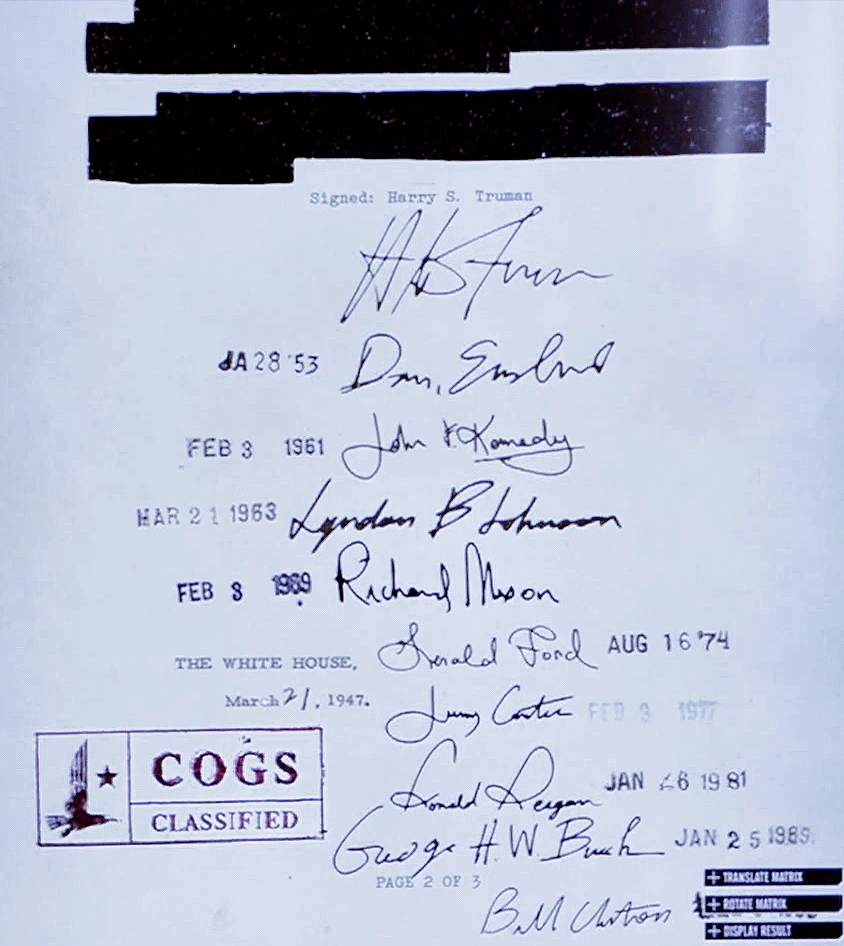 Signed: Harry S. Truman
JA 28 '53
FEB 3 1961 John F. Kennedy
MAR 21 1963 Lyndon B Johnson
FEB 3 1969 Richard Nixon
Gerald Ford AUG 16 '74
THE WHITE HOUSE,
March 21, 1947.
Jimmy Carter FEB 3 1977
COGS
CLASSIFIED
Ronald Reagan JAN 26 1981
George H.W. Bush JAN 25 1989
PAGE 2 OF 3
Bill Clinton
TRANSLATE MATRIX
ROTATE MATRIX
DISPLAY RESULT